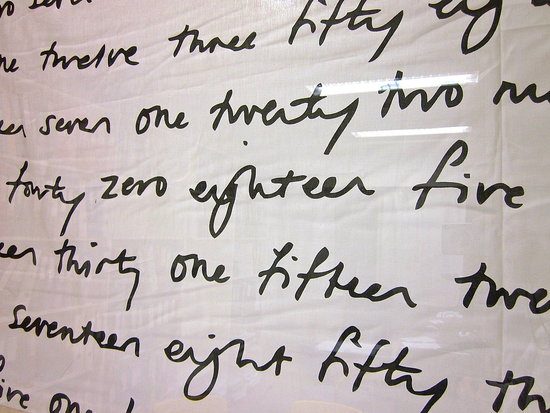 zero
twelve three fifty eigh
seven one twenty two
forty zero eighteen five
een thirty one fifteen twe
seventeen eight fifty th
ive one